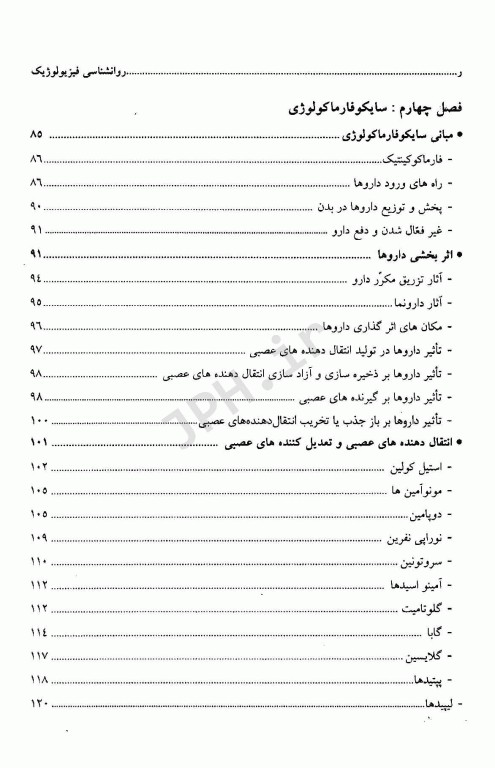 ر.....روانشناسی فیزیولوژیک
فصل چهارم : سایکوفارماکولوژی
• مبانی سایکوفارماکولوژی..... ۸۵
- فارماکوکینتیک..... ۸۶
- راه های ورود داروها..... ۸۶
- پخش و توزیع داروها در بدن..... ۹۰
- غیر فعّال شدن و دفع دارو..... ۹۱
• اثر بخشی داروها..... ۹۱
- آثار تزریق مکرّر دارو..... ۹۴
- آثار دارونما..... ۹۵
- مکان های اثر گذاری داروها..... ۹۶
- تأثیر داروها در تولید انتقال دهنده های عصبی..... ۹۷
- تأثیر داروها بر ذخیره سازی و آزاد سازی انتقال دهنده های عصبی..... ۹۸
- تأثیر داروها بر گیرنده های عصبی..... ۹۸
- تأثیر داروها بر باز جذب یا تخریب انتقال‌دهنده‌های عصبی..... ۱۰۰
• انتقال دهنده های عصبی و تعدیل کننده های عصبی..... ۱۰۱
- استیل کولین..... ۱۰۲
- مونوآمین ها..... ۱۰۵
- دوپامین..... ۱۰۵
- نوراپی نفرین..... ۱۰۹
- سروتونین..... ۱۱۰
- آمینو اسیدها..... ۱۱۲
- گلوتامیت..... ۱۱۲
- گابا..... ۱۱۴
- گلایسین..... ۱۱۷
- پپتیدها..... ۱۱۸
- لیپیدها..... ۱۲۰
JPH.ir